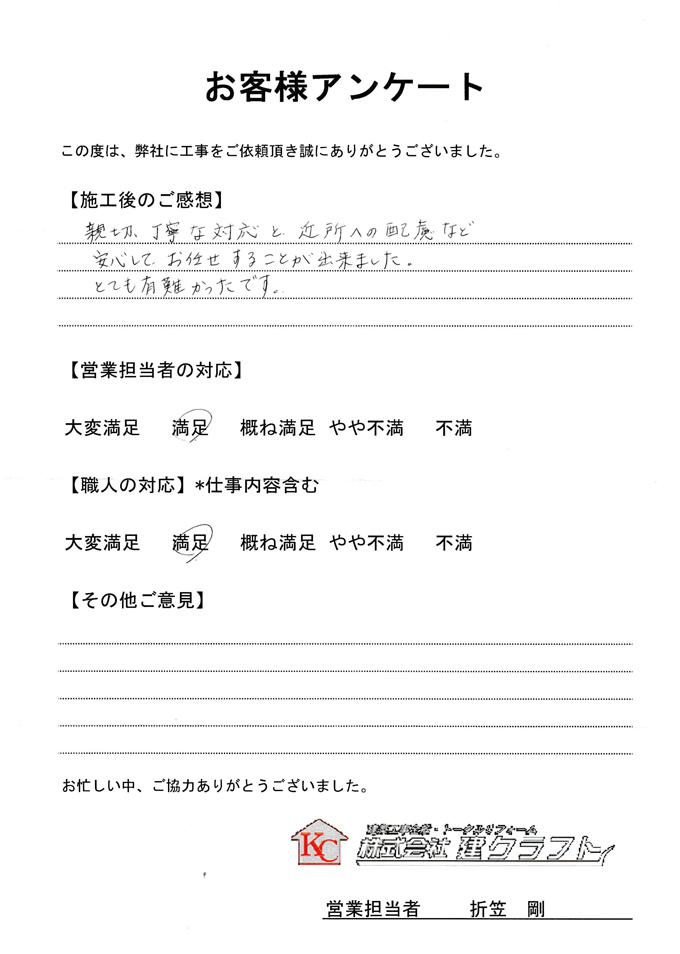 お客様アンケート
この度は、弊社に工事をご依頼頂き誠にありがとうございました。
【施工後のご感想】
親切、丁寧な対応と近所への配慮など
安心してお任せすることが出来ました。
とても有難かったです。
【営業担当者の対応】
大変満足 満足 概ね満足 やや不満 不満
【職人の対応】*仕事内容含む
大変満足 満足 概ね満足 やや不満 不満
【その他ご意見】
お忙しい中、ご協力ありがとうございました。
KC
建築工事全般・トータルリフォーム
株式会社 建クラフト
営業担当者 折笠 剛